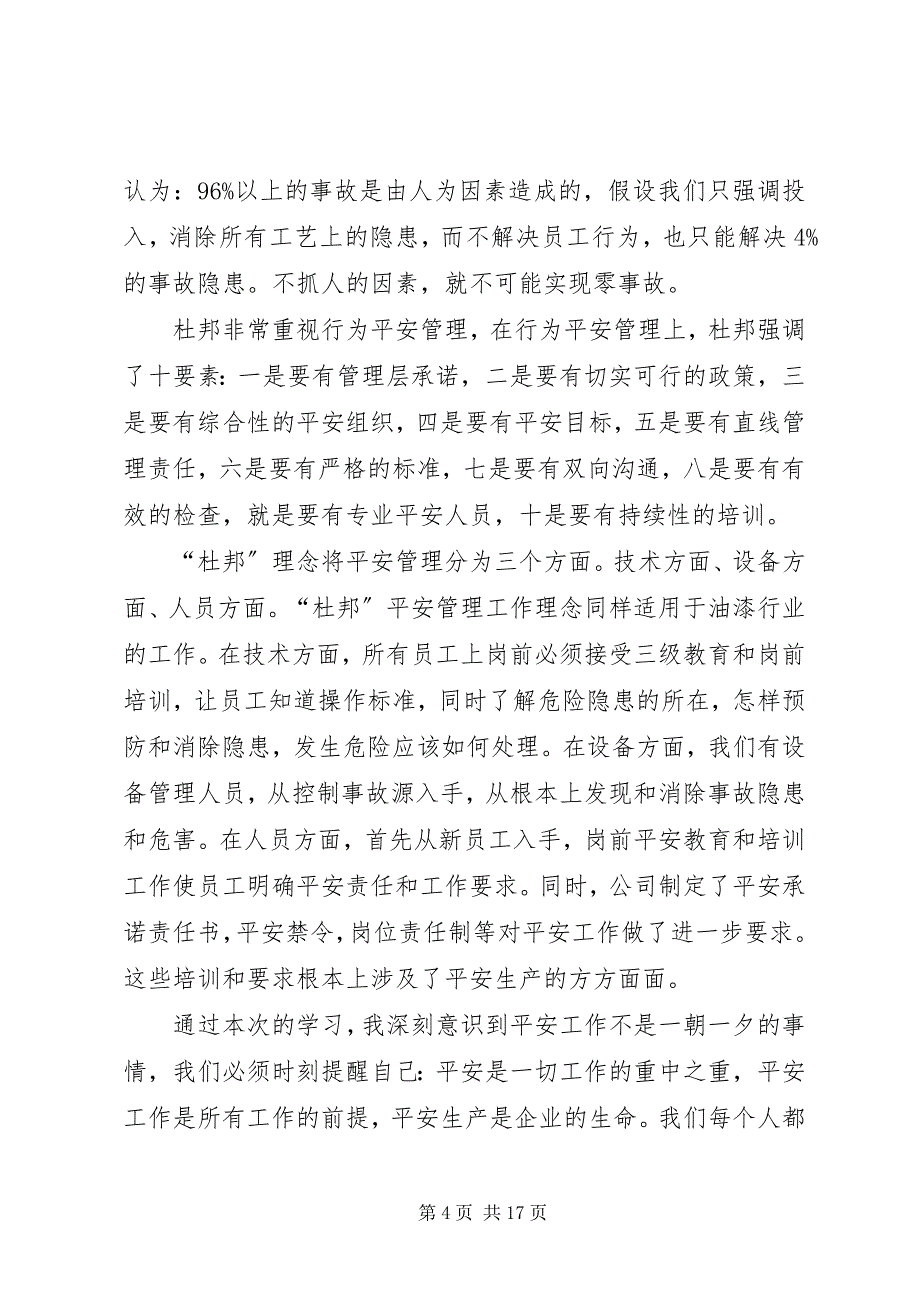 认为：96%以上的事故是由人为因素造成的，假设我们只强调投
入，消除所有工艺上的隐患，而不解决员工行为，也只能解决 4%
的事故隐患。不抓人的因素，就不可能实现零事故。
杜邦非常重视行为平安管理，在行为平安管理上，杜邦强调
了十要素：一是要有管理层承诺，二是要有切实可行的政策，三
是要有综合性的平安组织，四是要有平安目标，五是要有直线管
理责任，六是要有严格的标准，七是要有双向沟通，八是要有有
效的检查，就是要有专业平安人员，十是要有持续性的培训。
“杜邦〞理念将平安管理分为三个方面。技术方面、设备方
面、人员方面。“杜邦〞平安管理工作理念同样适用于油漆行业
的工作。在技术方面，所有员工上岗前必须接受三级教育和岗前
培训，让员工知道操作标准，同时了解危险隐患的所在，怎样预
防和消除隐患，发生危险应该如何处理。在设备方面，我们有设
备管理人员，从控制事故源入手，从根本上发现和消除事故隐患
和危害。在人员方面，首先从新员工入手，岗前平安教育和培训
工作使员工明确平安责任和工作要求。同时，公司制定了平安承
诺责任书，平安禁令，岗位责任制等对平安工作做了进一步要求。
这些培训和要求根本上涉及了平安生产的方方面面。
通过本次的学习，我深刻意识到平安工作不是一朝一夕的事
情，我们必须时刻提醒自己：平安是一切工作的重中之重，平安
工作是所有工作的前提，平安生产是企业的生命。我们每个人都
第 4 页 共 17 页